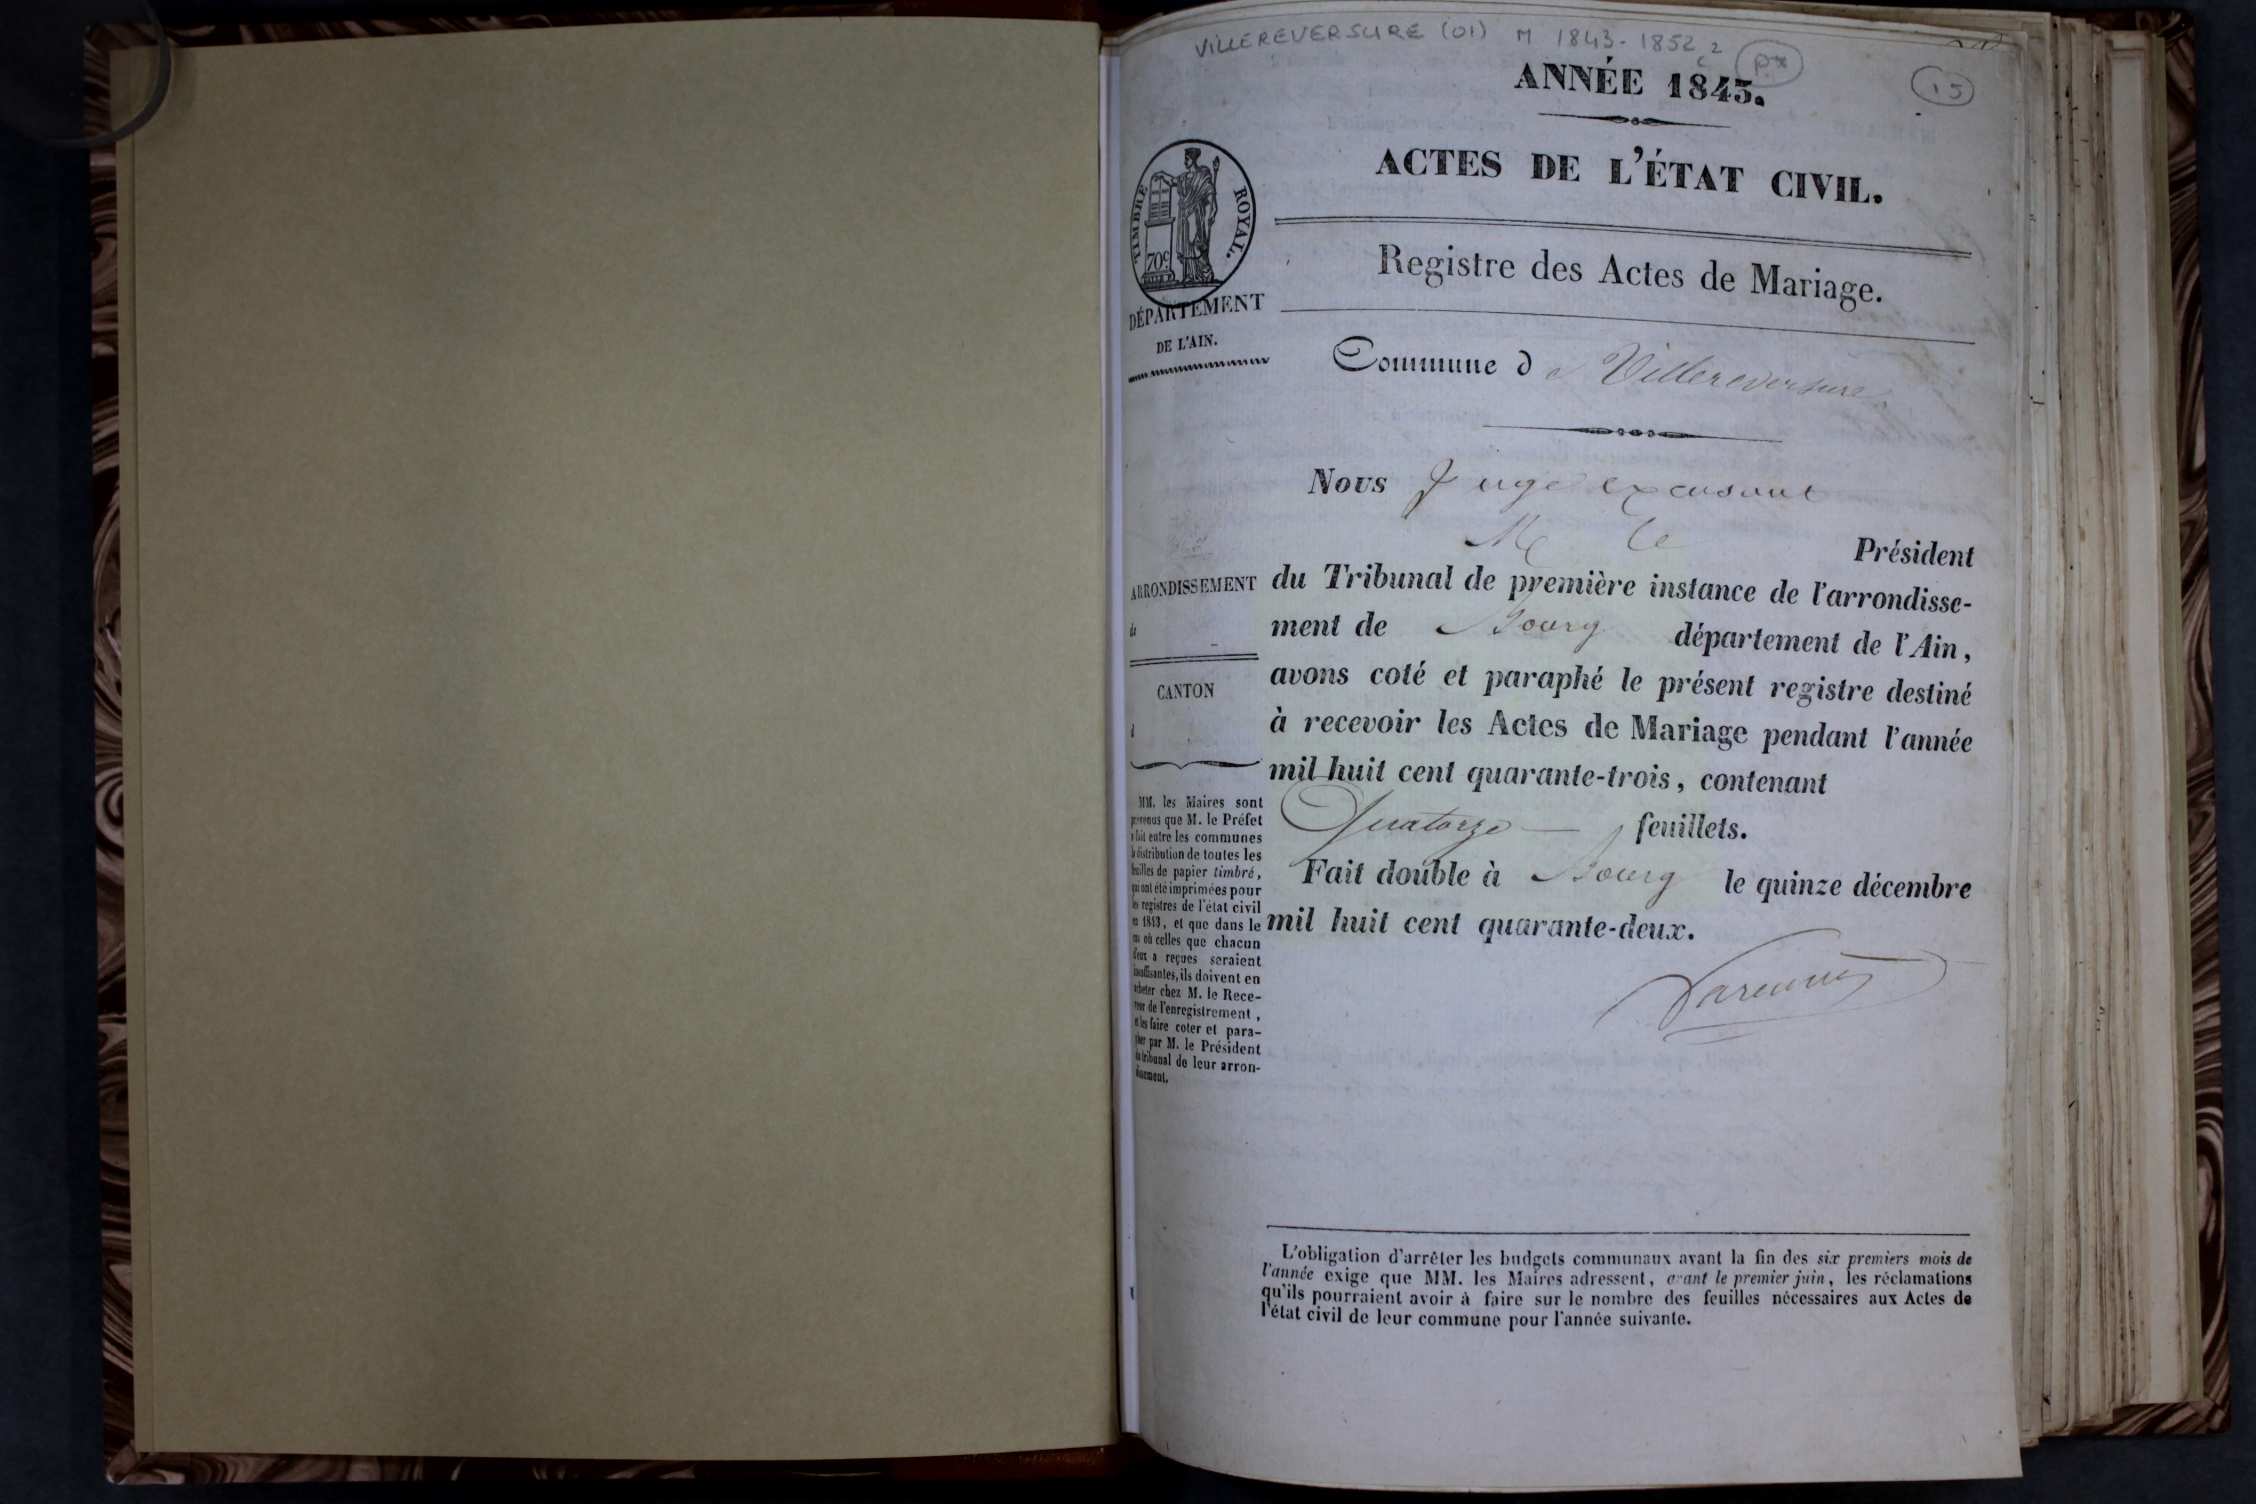 VILLEREVERSURE (01) M 1843-1852 2
15
ANNÉE 1843.
ACTES DE L'ÉTAT CIVIL.
TIMBRE ROYAL.
70c
DÉPARTEMENT
DE L'AIN.
Registre des Actes de Mariage.
Commune de Villereversure
Nous Juge excusant
M le Président
ARRONDISSEMENT
de
du Tribunal de première instance de l'arrondisse-
ment de Bourg département de l'Ain,
avons coté et paraphé le présent registre destiné
à recevoir les Actes de Mariage pendant l'année
mil huit cent quarante-trois, contenant
Quatorze feuillets.
Fait double à Bourg le quinze décembre
mil huit cent quarante-deux.
CANTON
d
MM. les Maires sont
prévenus que M. le Préfet
a fait entre les communes
la distribution de toutes les
feuilles de papier timbré,
qui ont été imprimées pour
les registres de l'état civil
en 1843, et que dans le
cas où celles que chacun
d'eux a reçues seraient
insuffisantes, ils doivent en
acheter chez M. le Rece-
veur de l'enregistrement,
et les faire coter et para-
pher par M. le Président
du tribunal de leur arron-
dissement.
L'obligation d'arrêter les budgets communaux avant la fin des six premiers mois de
l'année exige que MM. les Maires adressent, avant le premier juin, les réclamations
qu'ils pourraient avoir à faire sur le nombre des feuilles nécessaires aux Actes de
l'état civil de leur commune pour l'année suivante.